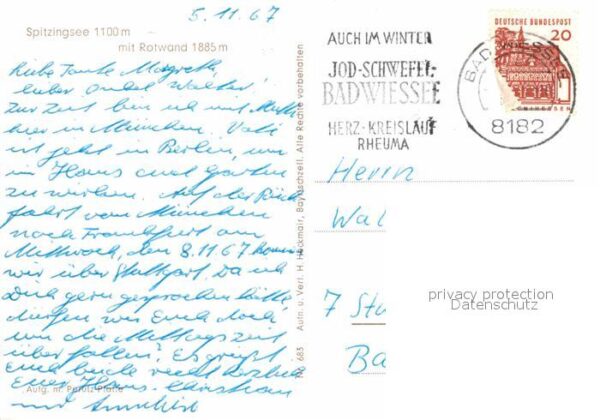 5.11.67
Spitzingsee 1100 m
mit Rotwand 1885 m
Liebe Tante Margreth,
lieber Onkel Walter,
zur Zeit bin ich mit
hier in München.
ist jetzt in Berlin, um
in Haus und Garten
zu wirken. Auf der Rück
fahrt von München
nach Frankfurt am
Mittwoch, den 8.11.67 kommen
wir über Stuttgart. Da ich
Dich gern gesprochen hätte,
dürfen wir Euch doch
um die Mittagszeit
überfallen? Es grüsst
Euch beide recht herzlich
Euer Hans-Christian
und Anneliese
Aufg. m. Perutz-Platte
No 683 Aufn. u. Verl. H. Heckmair, Bayrischzell. Alle Rechte vorbehalten
AUCH IM WINTER
JOD-SCHWEFEL-
BAD WIESSEE
HERZ-KREISLAUF
RHEUMA
DEUTSCHE BUNDESPOST
20
BAD WIESSEE
8182
Herrn
Wal
7 Stu
Ba
privacy protection
Datenschutz